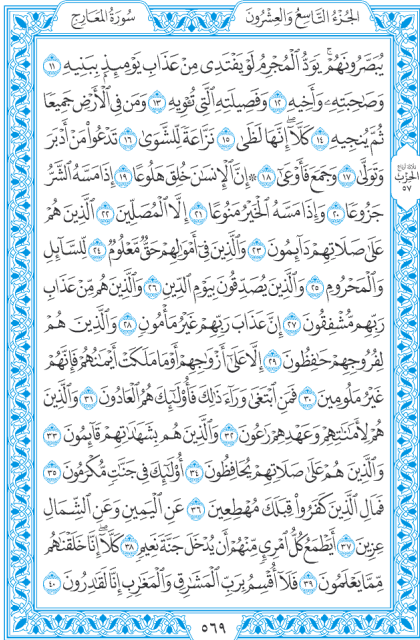 الجُزْءُ التَّاسِعُ وَالْعِشْرُونَ سُورَةُ المَعَارِجِ
يُبَصَّرُونَهُمْ ۚ يَوَدُّ الْمُجْرِمُ لَوْ يَفْتَدِى مِنْ عَذَابِ يَوْمِئِذٍۭ بِبَنِيهِ ١١
وَصَٰحِبَتِهِۦ وَأَخِيهِ ١٢ وَفَصِيلَتِهِ الَّتِى تُـْٔوِيهِ ١٣ وَمَن فِى الْأَرْضِ جَمِيعًا
ثُمَّ يُنجِيهِ ١٤ كَلَّآ ۖ إِنَّهَا لَظَىٰ ١٥ نَزَّاعَةً لِّلشَّوَىٰ ١٦ تَدْعُوا۟ مَنْ أَدْبَرَ
وَتَوَلَّىٰ ١٧ وَجَمَعَ فَأَوْعَىٰٓ ١٨ ۞ إِنَّ الْإِنسَٰنَ خُلِقَ هَلُوعًا ١٩ إِذَا مَسَّهُ الشَّرُّ
جَزُوعًا ٢٠ وَإِذَا مَسَّهُ الْخَيْرُ مَنُوعًا ٢١ إِلَّا الْمُصَلِّينَ ٢٢ الَّذِينَ هُمْ
عَلَىٰ صَلَاتِهِمْ دَآئِمُونَ ٢٣ وَالَّذِينَ فِىٓ أَمْوَٰلِهِمْ حَقٌّ مَّعْلُومٌ ٢٤ لِّلسَّآئِلِ
وَالْمَحْرُومِ ٢٥ وَالَّذِينَ يُصَدِّقُونَ بِيَوْمِ الدِّينِ ٢٦ وَالَّذِينَ هُم مِّنْ عَذَابِ
رَبِّهِم مُّشْفِقُونَ ٢٧ إِنَّ عَذَابَ رَبِّهِمْ غَيْرُ مَأْمُونٍ ٢٨ وَالَّذِينَ هُمْ
لِفُرُوجِهِمْ حَٰفِظُونَ ٢٩ إِلَّا عَلَىٰٓ أَزْوَٰجِهِمْ أَوْ مَا مَلَكَتْ أَيْمَٰنُهُمْ فَإِنَّهُمْ
غَيْرُ مَلُومِينَ ٣٠ فَمَنِ ابْتَغَىٰ وَرَآءَ ذَٰلِكَ فَأُو۟لَٰٓئِكَ هُمُ الْعَادُونَ ٣١ وَالَّذِينَ
هُمْ لِأَمَٰنَٰتِهِمْ وَعَهْدِهِمْ رَٰعُونَ ٣٢ وَالَّذِينَ هُم بِشَهَٰدَٰتِهِمْ قَآئِمُونَ ٣٣
وَالَّذِينَ هُمْ عَلَىٰ صَلَاتِهِمْ يُحَافِظُونَ ٣٤ أُو۟لَٰٓئِكَ فِى جَنَّٰتٍ مُّكْرَمُونَ ٣٥
فَمَالِ الَّذِينَ كَفَرُوا۟ قِبَلَكَ مُهْطِعِينَ ٣٦ عَنِ الْيَمِينِ وَعَنِ الشِّمَالِ
عِزِينَ ٣٧ أَيَطْمَعُ كُلُّ امْرِئٍ مِّنْهُمْ أَن يُدْخَلَ جَنَّةَ نَعِيمٍ ٣٨ كَلَّآ ۖ إِنَّا خَلَقْنَٰهُم
مِّمَّا يَعْلَمُونَ ٣٩ فَلَآ أُقْسِمُ بِرَبِّ الْمَشَٰرِقِ وَالْمَغَٰرِبِ إِنَّا لَقَٰدِرُونَ ٤٠
الحِزْب
٥٧
٥٦٩